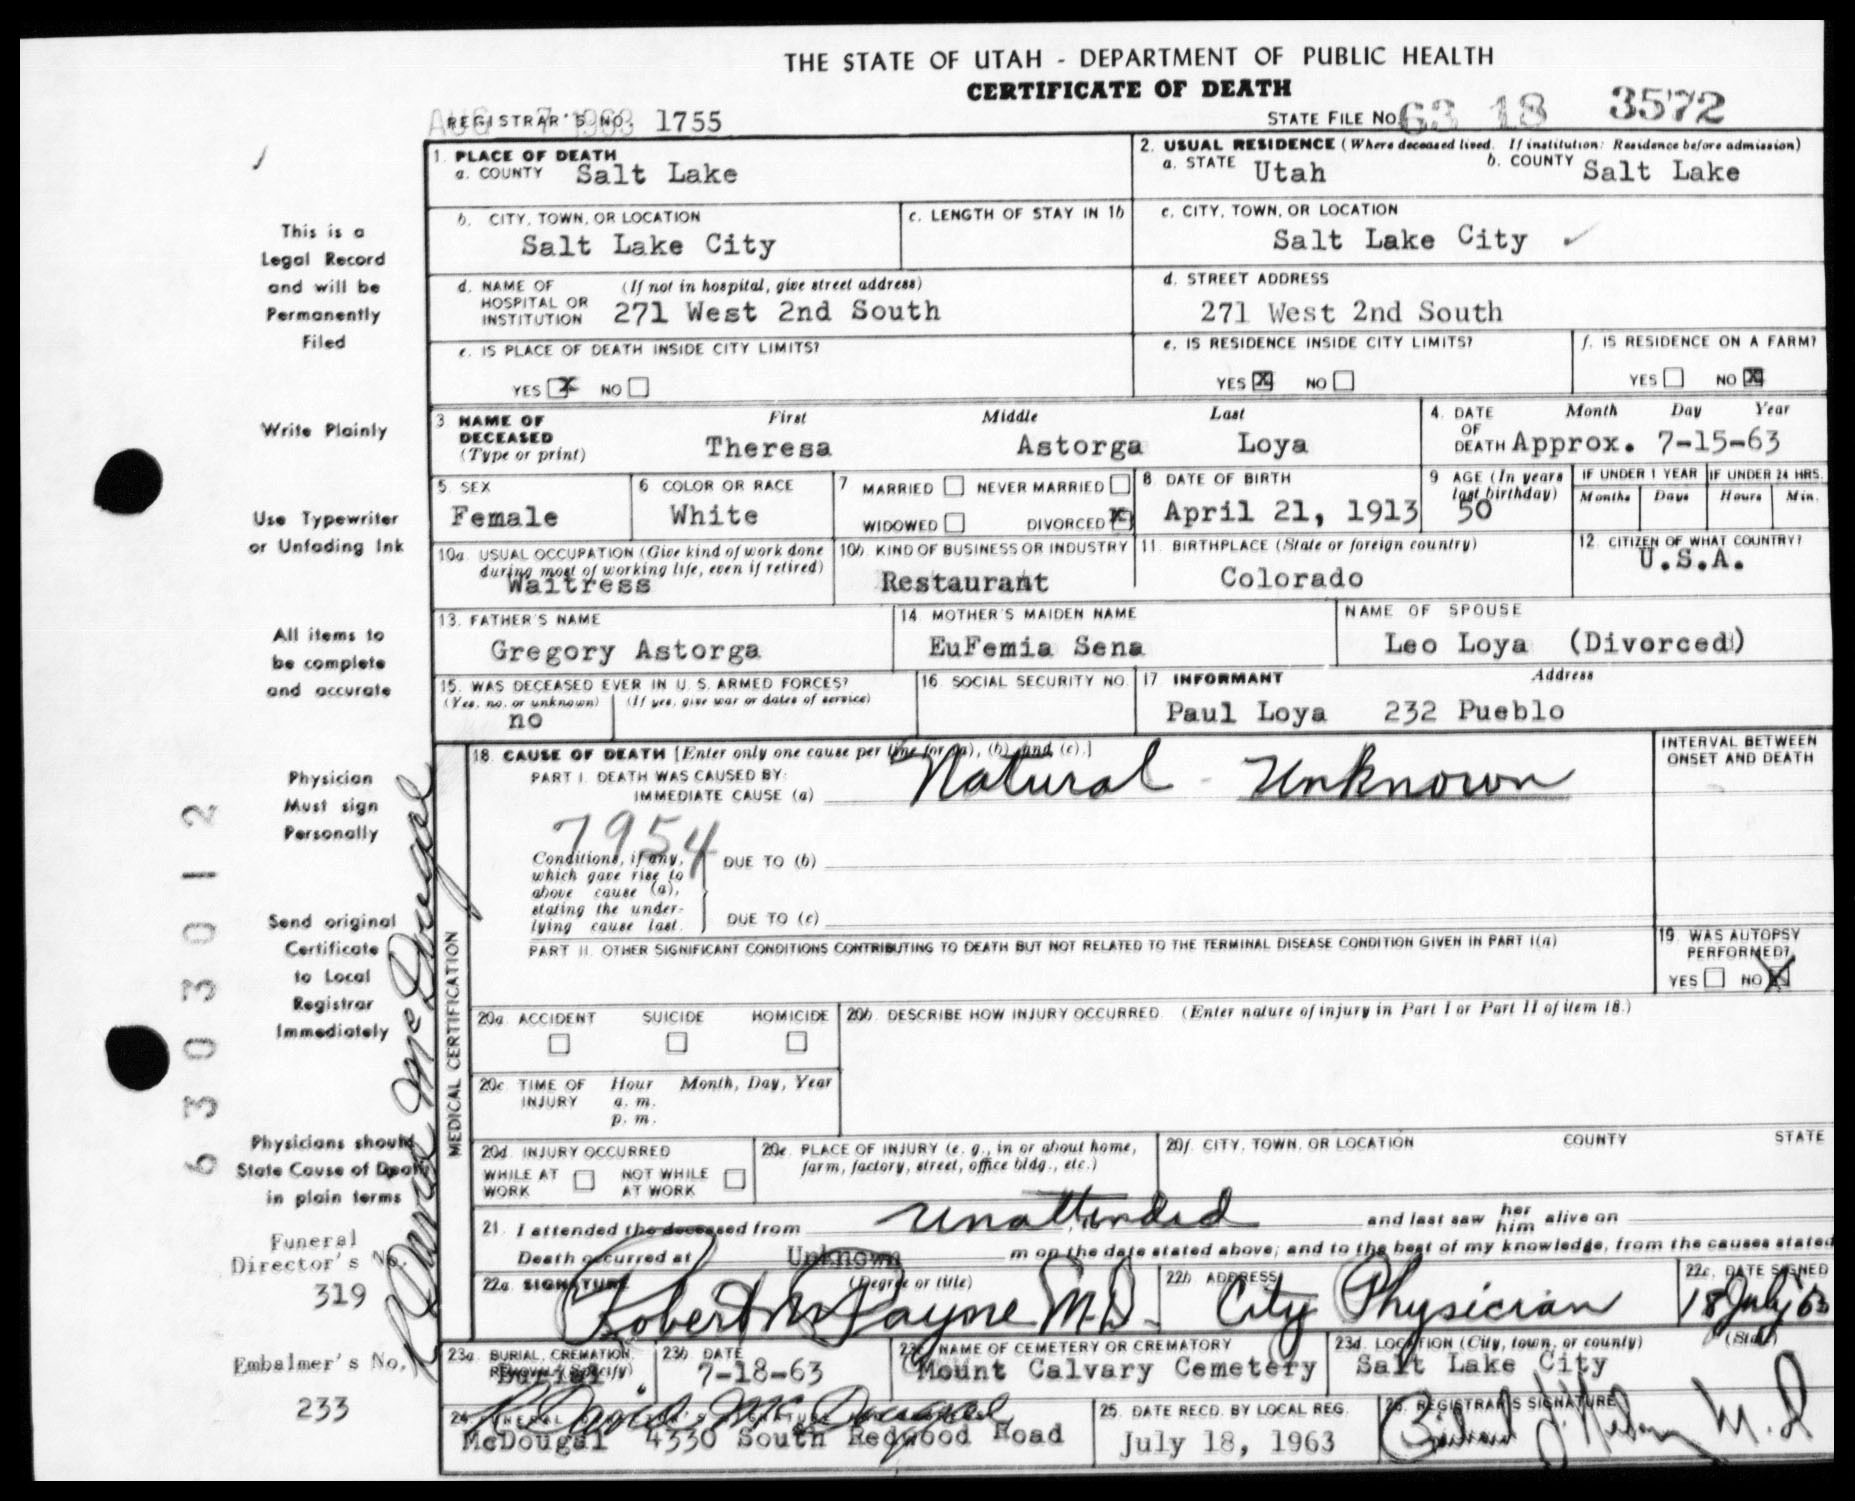 THE STATE OF UTAH - DEPARTMENT OF PUBLIC HEALTH
CERTIFICATE OF DEATH
AUG 7 1963
REGISTRAR'S NO. 1755
STATE FILE NO. 63 18 3572
1. PLACE OF DEATH
a. COUNTY Salt Lake
2. USUAL RESIDENCE (Where deceased lived. If institution: Residence before admission)
a. STATE Utah b. COUNTY Salt Lake
b. CITY, TOWN, OR LOCATION
Salt Lake City
c. LENGTH OF STAY IN 1b
c. CITY, TOWN, OR LOCATION
Salt Lake City
d. NAME OF (If not in hospital, give street address)
HOSPITAL OR
INSTITUTION 271 West 2nd South
d. STREET ADDRESS
271 West 2nd South
e. IS PLACE OF DEATH INSIDE CITY LIMITS?
YES X NO
e. IS RESIDENCE INSIDE CITY LIMITS?
YES X NO
f. IS RESIDENCE ON A FARM?
YES NO X
3. NAME OF
DECEASED
(Type or print)
First Middle Last
Theresa Astorga Loya
4. DATE Month Day Year
OF
DEATH Approx. 7-15-63
5. SEX
Female
6. COLOR OR RACE
White
7. MARRIED NEVER MARRIED
WIDOWED DIVORCED X
8. DATE OF BIRTH
April 21, 1913
9. AGE (In years
last birthday)
50
IF UNDER 1 YEAR
Months Days
IF UNDER 24 HRS.
Hours Min.
10a. USUAL OCCUPATION (Give kind of work done
during most of working life, even if retired)
Waitress
10b. KIND OF BUSINESS OR INDUSTRY
Restaurant
11. BIRTHPLACE (State or foreign country)
Colorado
12. CITIZEN OF WHAT COUNTRY?
U.S.A.
13. FATHER'S NAME
Gregory Astorga
14. MOTHER'S MAIDEN NAME
EuFemia Sena
NAME OF SPOUSE
Leo Loya (Divorced)
15. WAS DECEASED EVER IN U. S. ARMED FORCES?
(Yes, no, or unknown) (If yes, give war or dates of service)
no
16. SOCIAL SECURITY NO.
17. INFORMANT Address
Paul Loya 232 Pueblo
18. CAUSE OF DEATH [Enter only one cause per line for (a), (b), and (c).]
PART I. DEATH WAS CAUSED BY:
IMMEDIATE CAUSE (a) Natural - Unknown
INTERVAL BETWEEN
ONSET AND DEATH
7954
Conditions, if any,
which gave rise to
above cause (a),
stating the under-
lying cause last.
DUE TO (b)
DUE TO (c)
PART II. OTHER SIGNIFICANT CONDITIONS CONTRIBUTING TO DEATH BUT NOT RELATED TO THE TERMINAL DISEASE CONDITION GIVEN IN PART I(a)
19. WAS AUTOPSY
PERFORMED?
YES NO X
MEDICAL CERTIFICATION
20a. ACCIDENT SUICIDE HOMICIDE
20b. DESCRIBE HOW INJURY OCCURRED. (Enter nature of injury in Part I or Part II of item 18.)
20c. TIME OF Hour Month, Day, Year
INJURY a. m.
p. m.
20d. INJURY OCCURRED
WHILE AT NOT WHILE
WORK AT WORK
20e. PLACE OF INJURY (e. g., in or about home,
farm, factory, street, office bldg., etc.)
20f. CITY, TOWN, OR LOCATION COUNTY STATE
21. I attended the deceased from Unattended and last saw her him alive on
Death occurred at Unknown m on the date stated above; and to the best of my knowledge, from the causes stated
22a. SIGNATURE (Degree or title)
Robert W Payne M.D.
22b. ADDRESS
City Physician
22c. DATE SIGNED
18 July 63
23a. BURIAL, CREMATION,
REMOVAL (Specify)
Burial
23b. DATE
7-18-63
23c. NAME OF CEMETERY OR CREMATORY
Mount Calvary Cemetery
23d. LOCATION (City, town, or county) (State)
Salt Lake City
24. FUNERAL DIRECTOR'S SIGNATURE
R David McDougal
McDougal 4330 South Redwood Road
25. DATE RECD. BY LOCAL REG.
July 18, 1963
26. REGISTRAR'S SIGNATURE
M.D.
This is a
Legal Record
and will be
Permanently
Filed
Write Plainly
Use Typewriter
or Unfading Ink
All items to
be complete
and accurate
Physician
Must sign
Personally
Send original
Certificate
to Local
Registrar
Immediately
Physicians should
State Cause of Death
in plain terms
Funeral
Director's No.
319
Embalmer's No.
233
R David McDougal
6303012